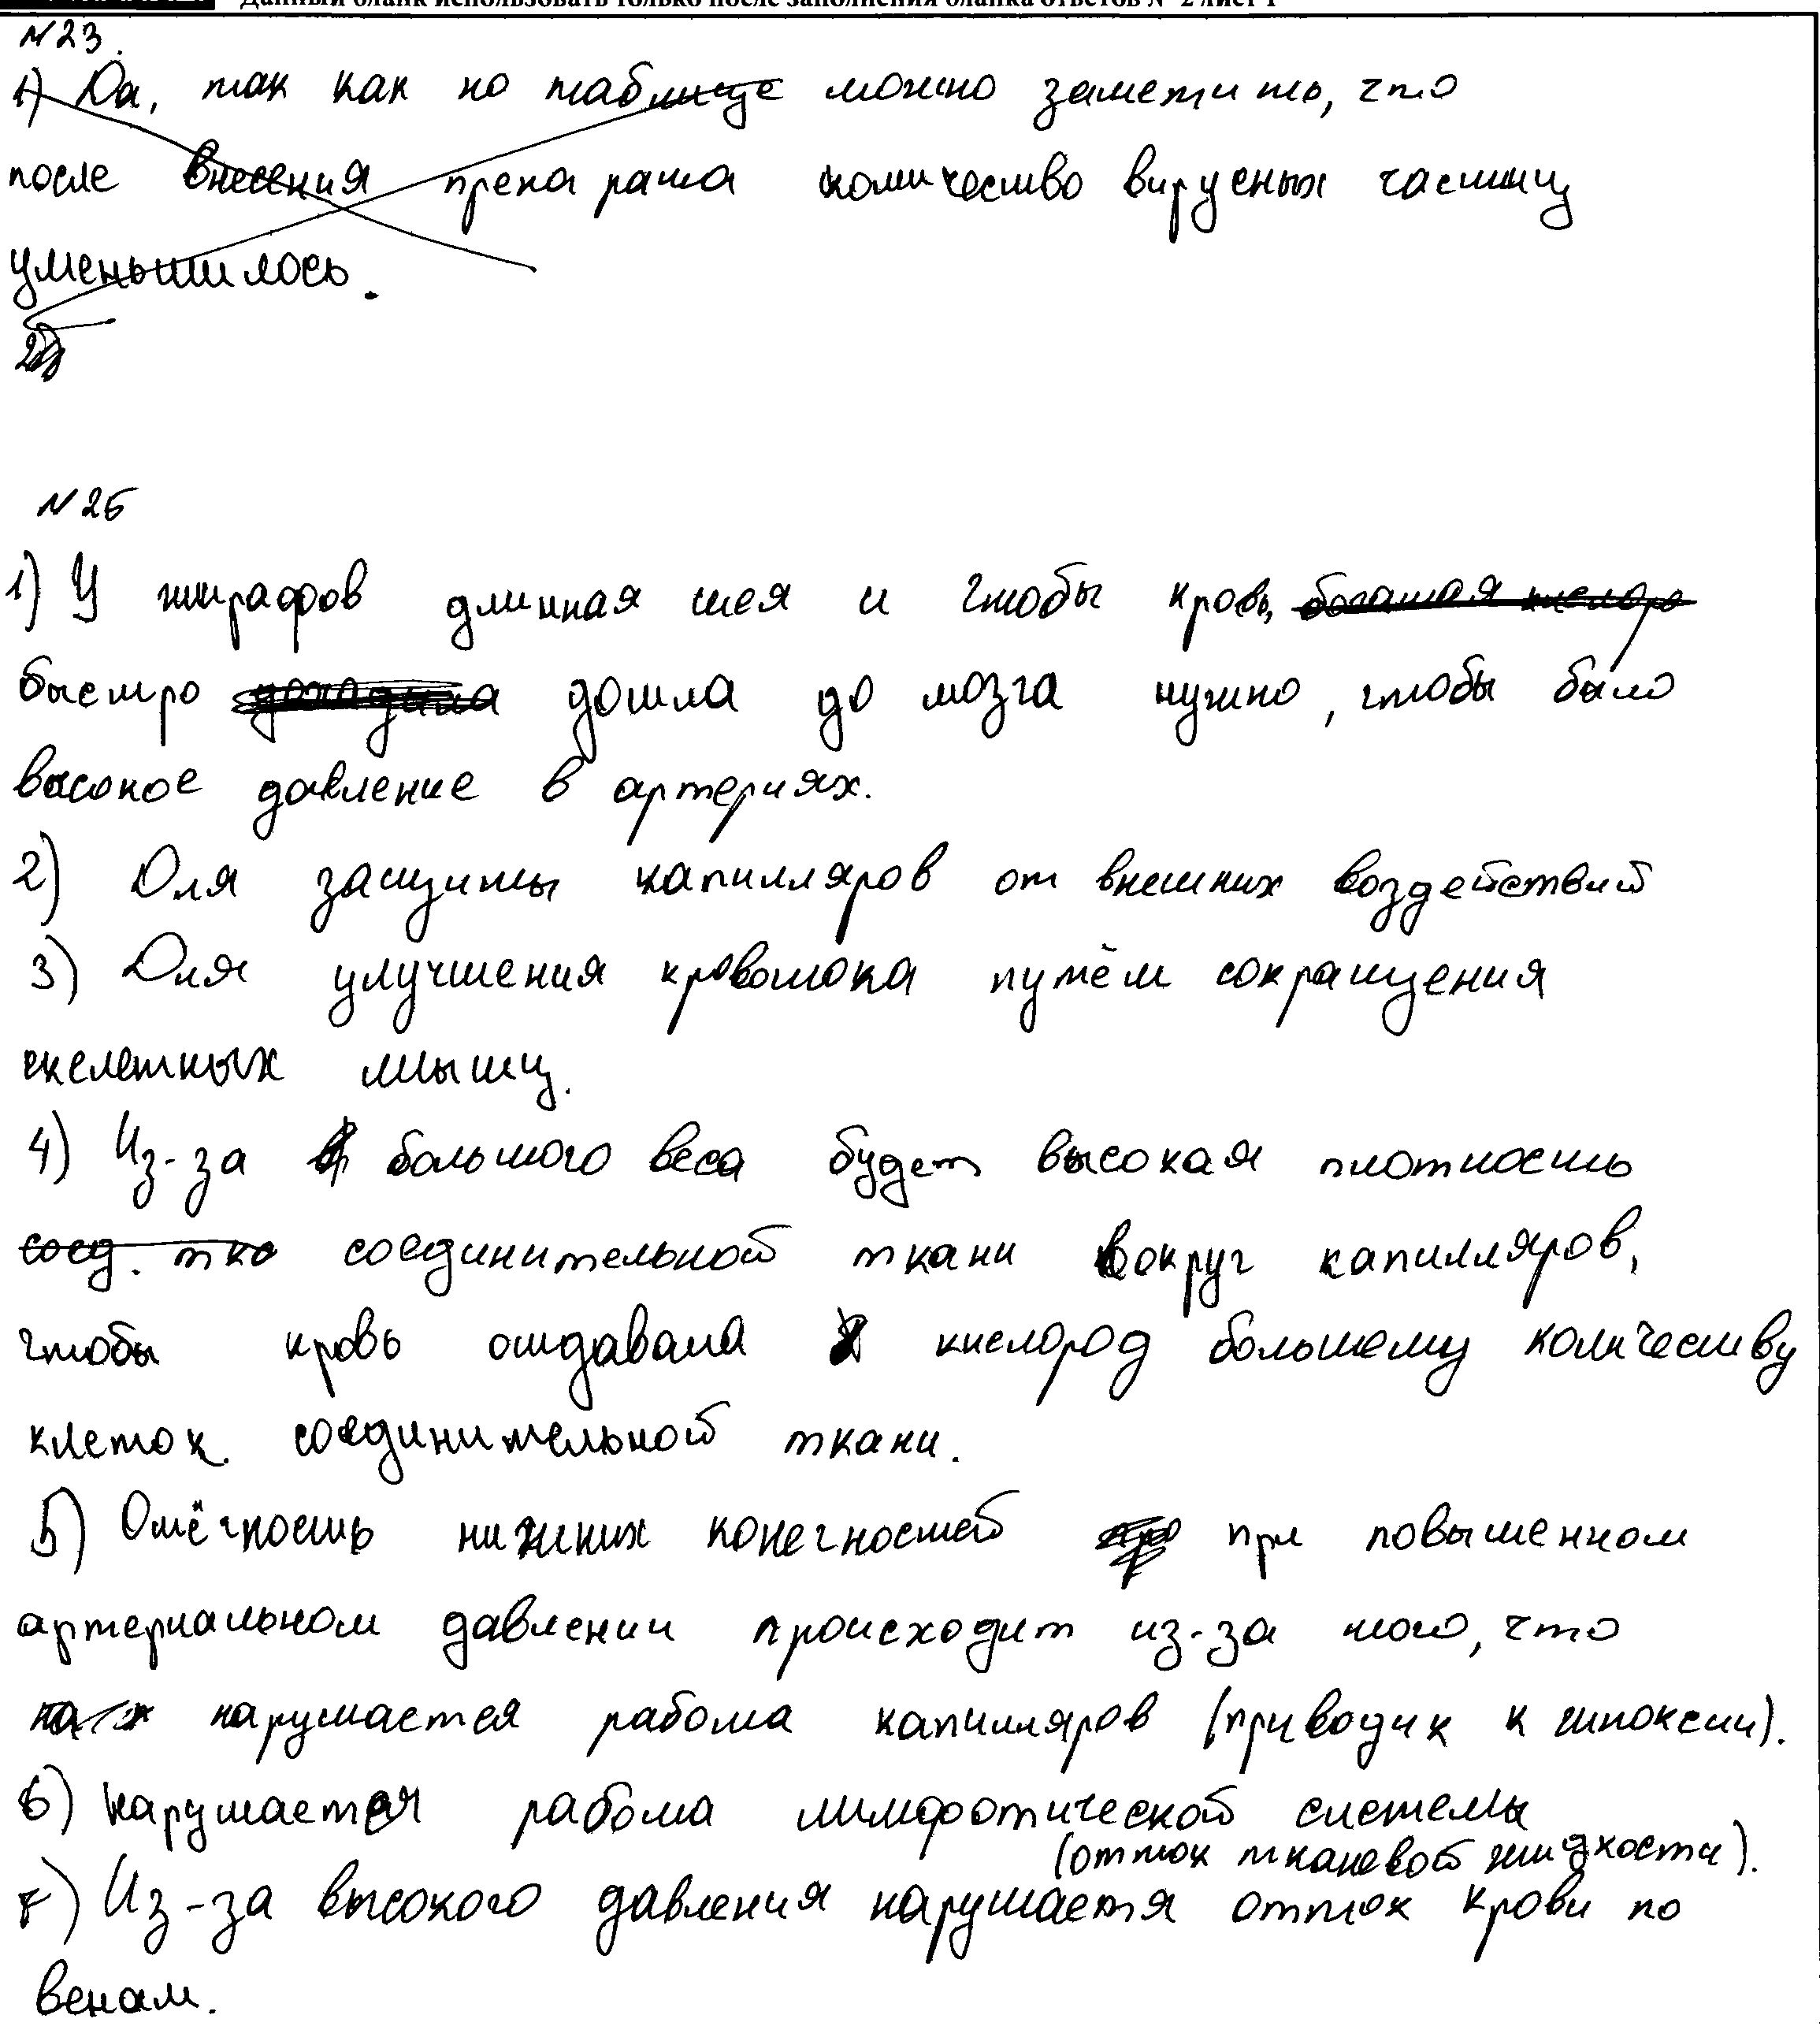 Данный бланк использовать только после заполнения бланка ответов № 2 лист 1
№23.
1) Да, так как по таблице можно заметить, что
после внесения препарата количество вирусных частиц
уменьшилось.
2)
№25
1) У жирафов длинная шея и чтобы кровь, богатая кислоро
быстро доходила дошла до мозга нужно, чтобы было
высокое давление в артериях.
2) Для защиты капилляров от внешних воздействий
3) Для улучшения кровотока путём сокращения
скелетных мышц.
4) Из-за большого веса будет высокая плотность
соед. тка соединительной ткани вокруг капилляров,
чтобы кровь отдавала кислород большему количеству
клеток соединительной ткани.
5) Отёчность нижних конечностей при повышенном
артериальном давлении происходит из-за того, что
нарушается работа капилляров (приводих к гипоксии).
6) Нарушается работа лимфотической системы
(отток тканевой жидкости).
7) Из-за высокого давления нарушается отток крови по
венам.